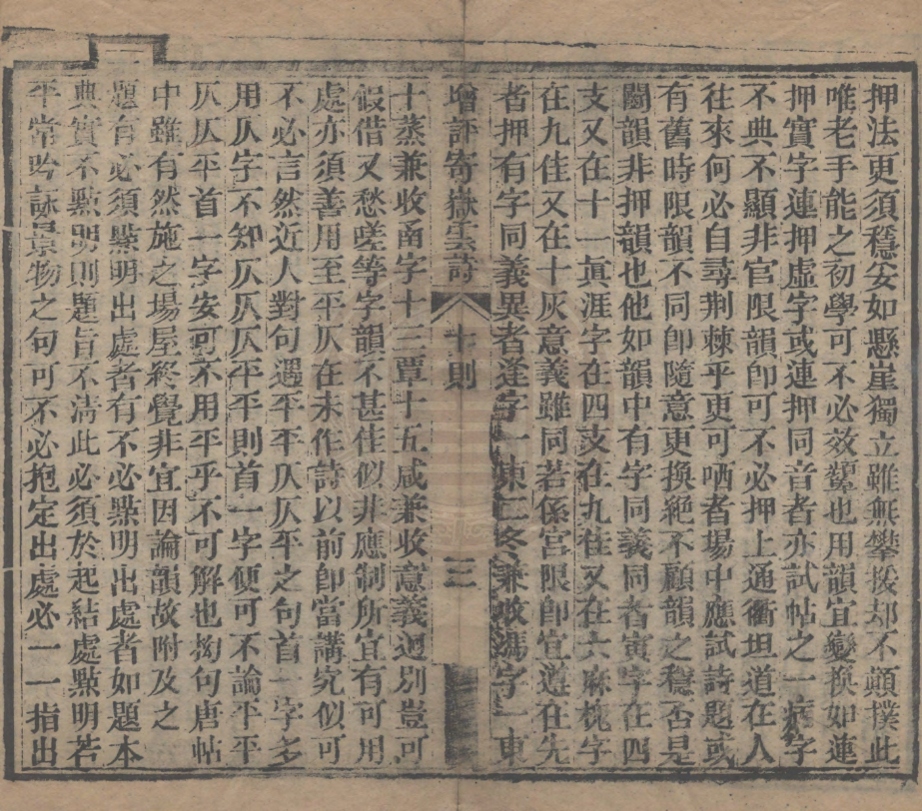 押法更須穩妥如懸崖獨立雖無攀援却不顛撲此
唯老手能之初學可不必效顰也用韻宜變換如連
押實字連押虛字或連押同音者亦試帖之一病字
不典不顯非官限韻卽可不必押上通衢坦道在人
往來何必自尋荆棘乎更可哂者場中應試詩題或
有舊時限韻不同卽隨意更換絕不顧韻之穩否是
鬭韻非押韻也他如韻中有字同義同者寅字在四
支又在十一眞涯字在四支在九佳又在六麻枕字
在九佳又在十灰意義雖同若係官限卽宜遵在先
者押有字同義異者逢字一東二冬兼收馮字一東
增評寄嶽雲詩
十則
二
十蒸兼收函字十三覃十五咸兼收意義迥別豈可
假借又愁嗟等字韻不甚佳似非應制所宜有可用
處亦須善用至平仄在未作詩以前卽當講究似可
不必言然近人對句遇平平仄仄平之句首一字多
用仄字不知仄仄仄平平則首一字便可不論平平
仄仄平首一字安可不用平乎不可解也拗句唐帖
中雖有然施之場屋終覺非宜因論韻故附及之
一題有必須點明出處者有不必點明出處者如題本
典實不點明則題旨不清此必須於起結處點明若
平常吟詠景物之句可不必抱定出處必一一指出